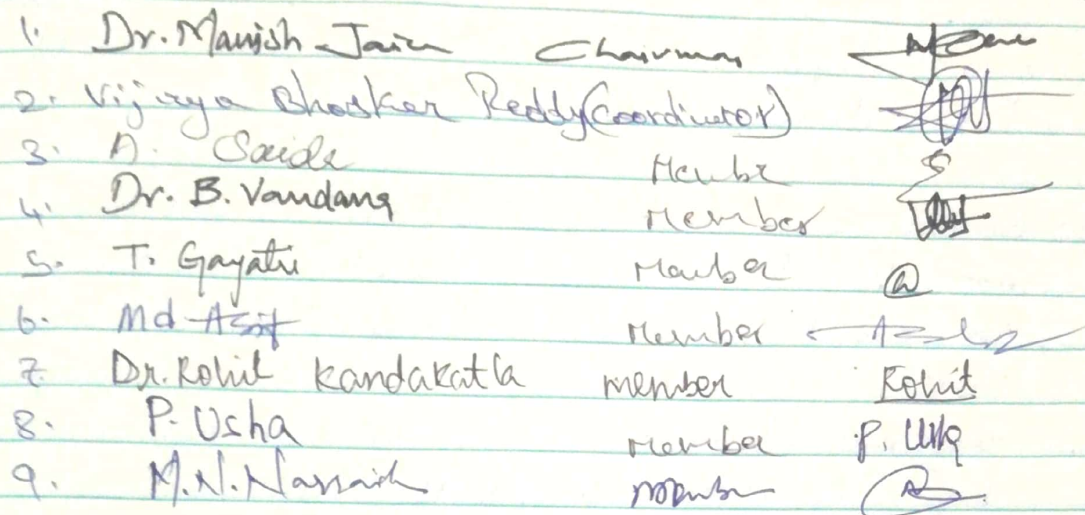 1. Dr. Manish Jain Chairman
2. Vijaya Bhasker Reddy (Coordinator)
3. A. Saida Member
4. Dr. B. Vandana Member
5. T. Gayatri Member
6. Md Asif Member
7. Dr. Rohit Kandakatla member Rohit
8. P. Usha Member P. Usha
9. M.N. Narsaiah member